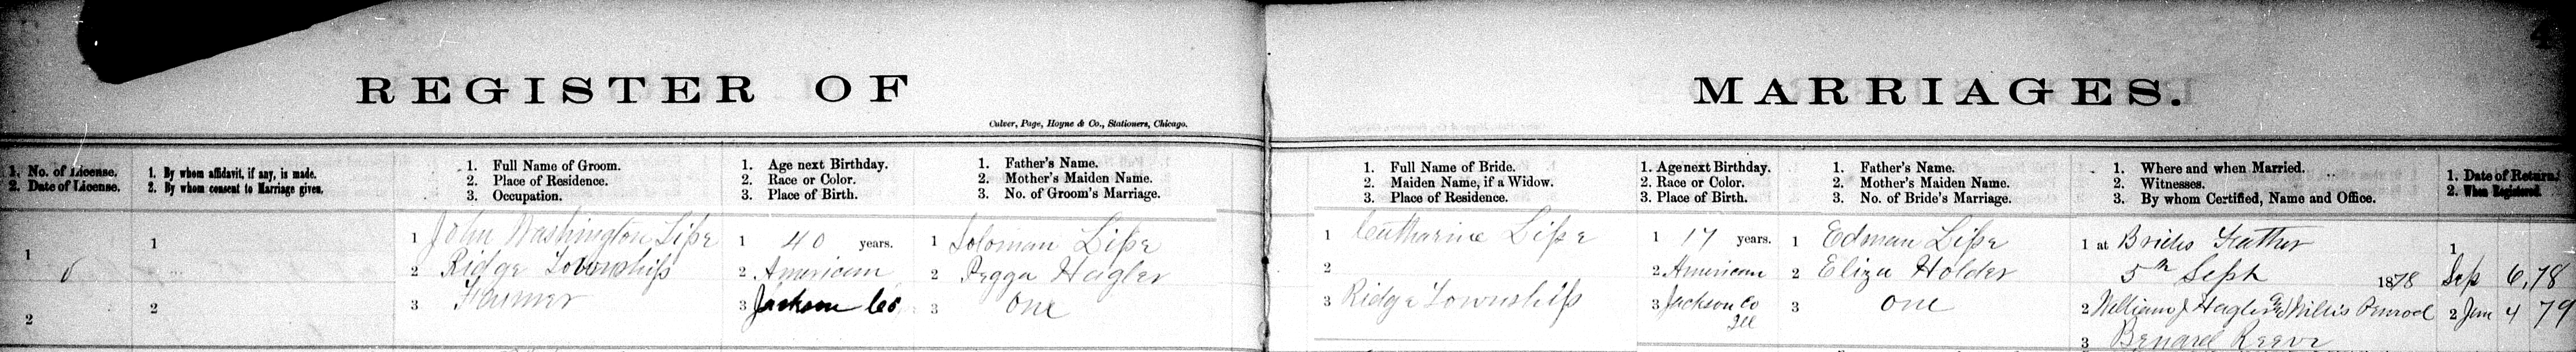 REGISTER OF MARRIAGES.
Culver, Page, Hoyne & Co., Stationers, Chicago.
1. No. of License.
2. Date of License.
1. By whom affidavit, if any, is made.
2. By whom consent to Marriage given.
1. Full Name of Groom.
2. Place of Residence.
3. Occupation.
1. Age next Birthday.
2. Race or Color.
3. Place of Birth.
1. Father's Name.
2. Mother's Maiden Name.
3. No. of Groom's Marriage.
1. Full Name of Bride.
2. Maiden Name, if a Widow.
3. Place of Residence.
1. Age next Birthday.
2. Race or Color.
3. Place of Birth.
1. Father's Name.
2. Mother's Maiden Name.
3. No. of Bride's Marriage.
1. Where and when Married.
2. Witnesses.
3. By whom Certified, Name and Office.
1. Date of Return.
2. When Registered.
1
2
1
2
1 John Washington Lipe
2 Ridge Township
3 Farmer
1 40 years.
2 American
3 Jackson Co
1 Soloman Lipe
2 Pegga Hagler
3 One
1 Catharine Lipe
2
3 Ridge Township
1 17 years.
2 American
3 Jackson Co
Ill
1 Edman Lipe
2 Eliza Holder
3 One
1 at Brides Father
5th Sept 1878
2 William J Hagler & Willis Penrod
3 Benard Reeve
1
Sep 6, 78
2 Jan 4 79